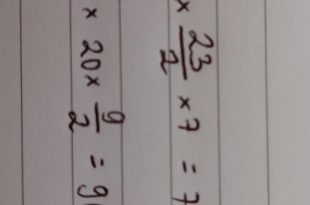 × 23/2 × 7 = 7
× 20 × 9/2 = 9